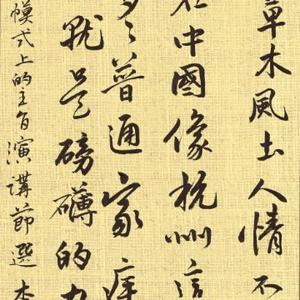 草木風土人情不
在中國像杭州這
普通家庭
就是磅礴的
式上的主旨演講節選